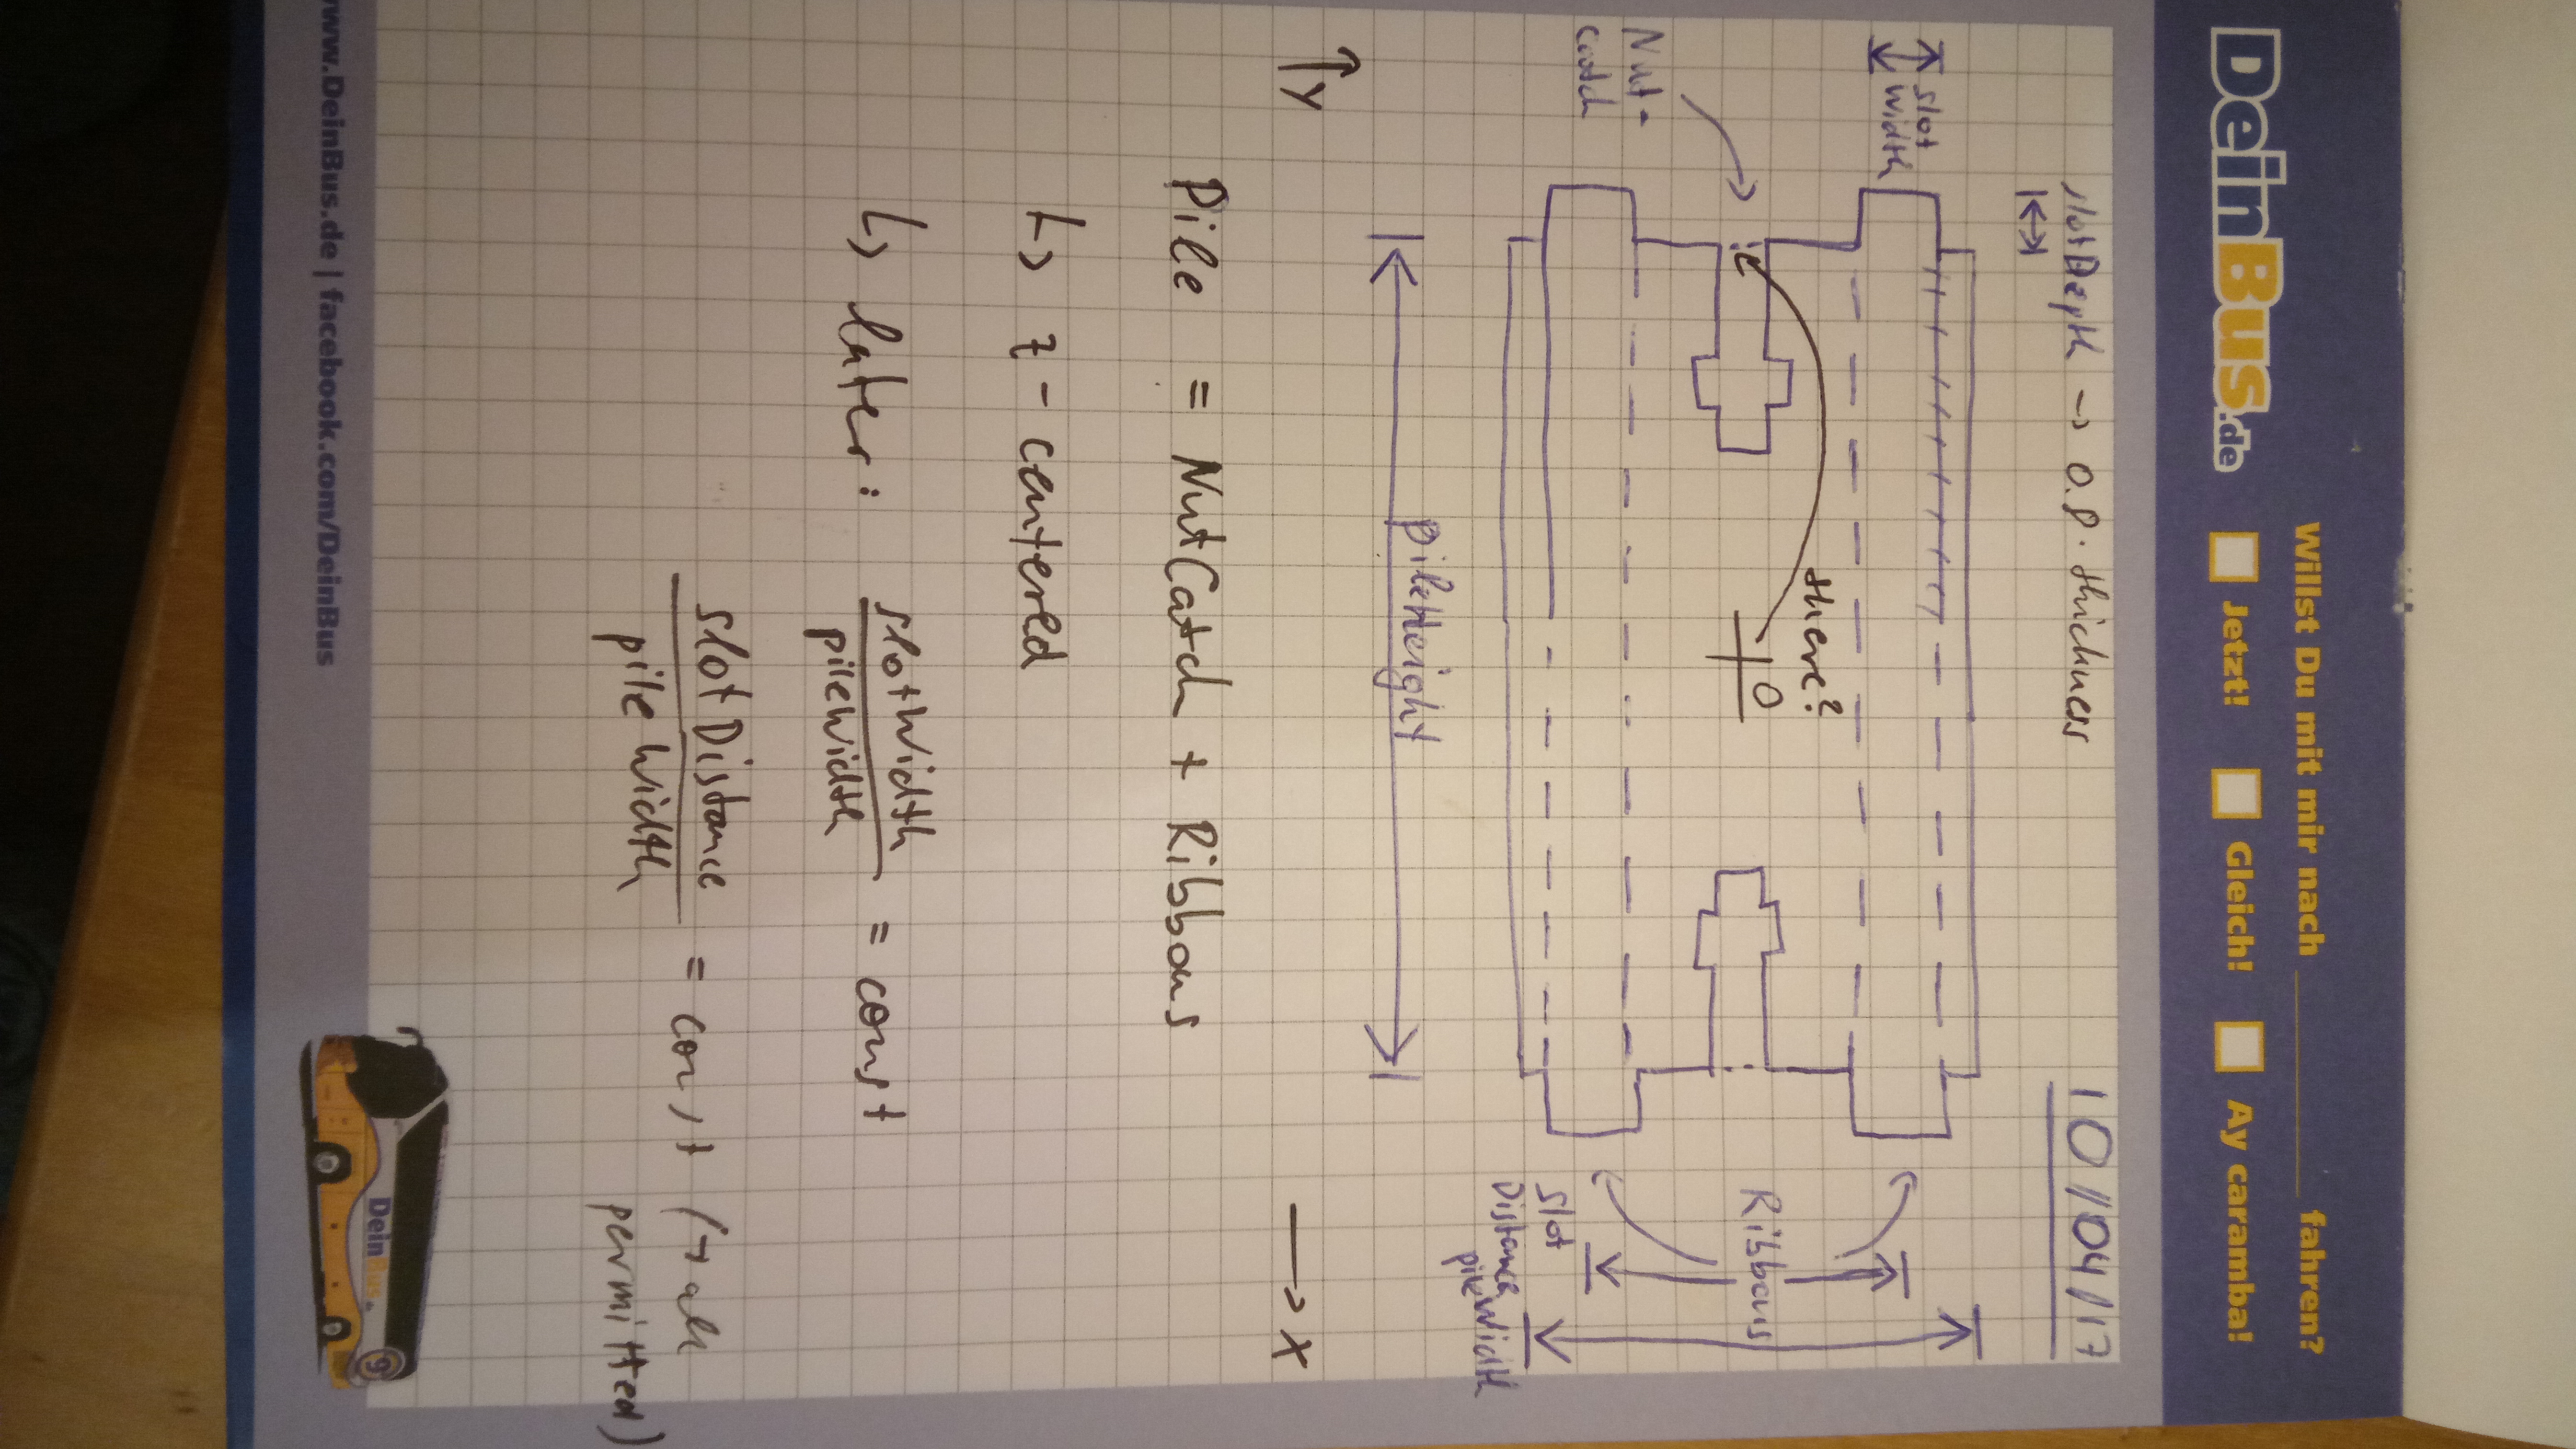 Willst Du mit mir nach ________ fahren?
DeinBus.de
Jetzt!
Gleich!
Ay caramba!
10/04/17
slotDepth → 0.8 · thickness
slot
width
Nut-
catch
there?
0
Ribbons
slot
Distance
pileWidth
pileHeight
↑y
→ x
Pile = NutCatch + Ribbons
↳ z-centered
↳ later:
slotWidth
pileWidth
= const
slotDistance
pileWidth
= const
permitted)
www.DeinBus.de | facebook.com/DeinBus
DeinBus
9